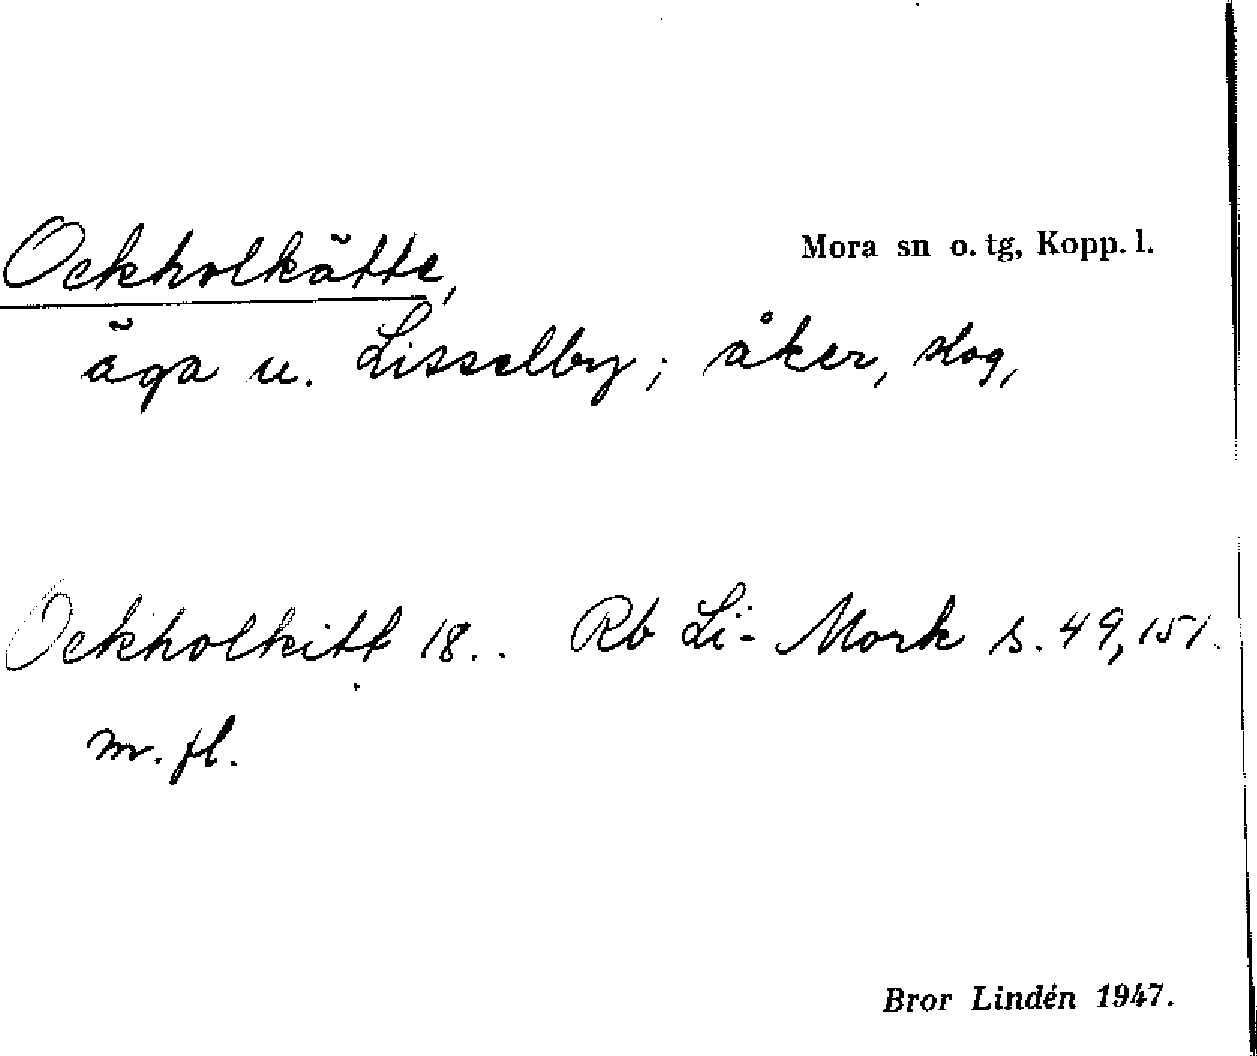 Ockholkätte,
Mora sn o. tg, Kopp. l.
äga u. Lisselby; åker, slog,
Ockholkitt 18.. Rb Li- Mork s. 49, 151.
m. fl.
Bror Lindén 1947.